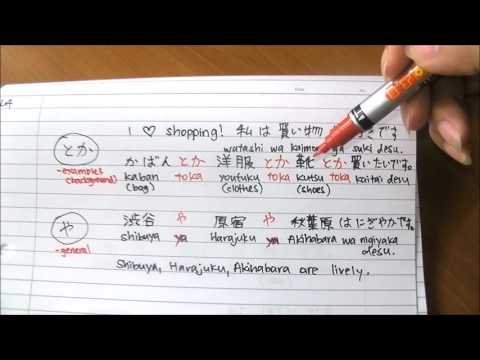 I ♡ shopping! 私は買い物 きです
watashi wa kaimono ga suki desu.
とか かばん とか 洋服 とか 靴 とか 買いたいです。
-examples (background) kaban toka youfuku toka kutsu toka kaitai desu
(bag) (clothes) (shoes)
や 渋谷 や 原宿 や 秋葉原 はにぎやかです。
-general shibuya ya Harajuku ya Akihabara wa nigiyaka desu.
Shibuya, Harajuku, Akihabara are lively.